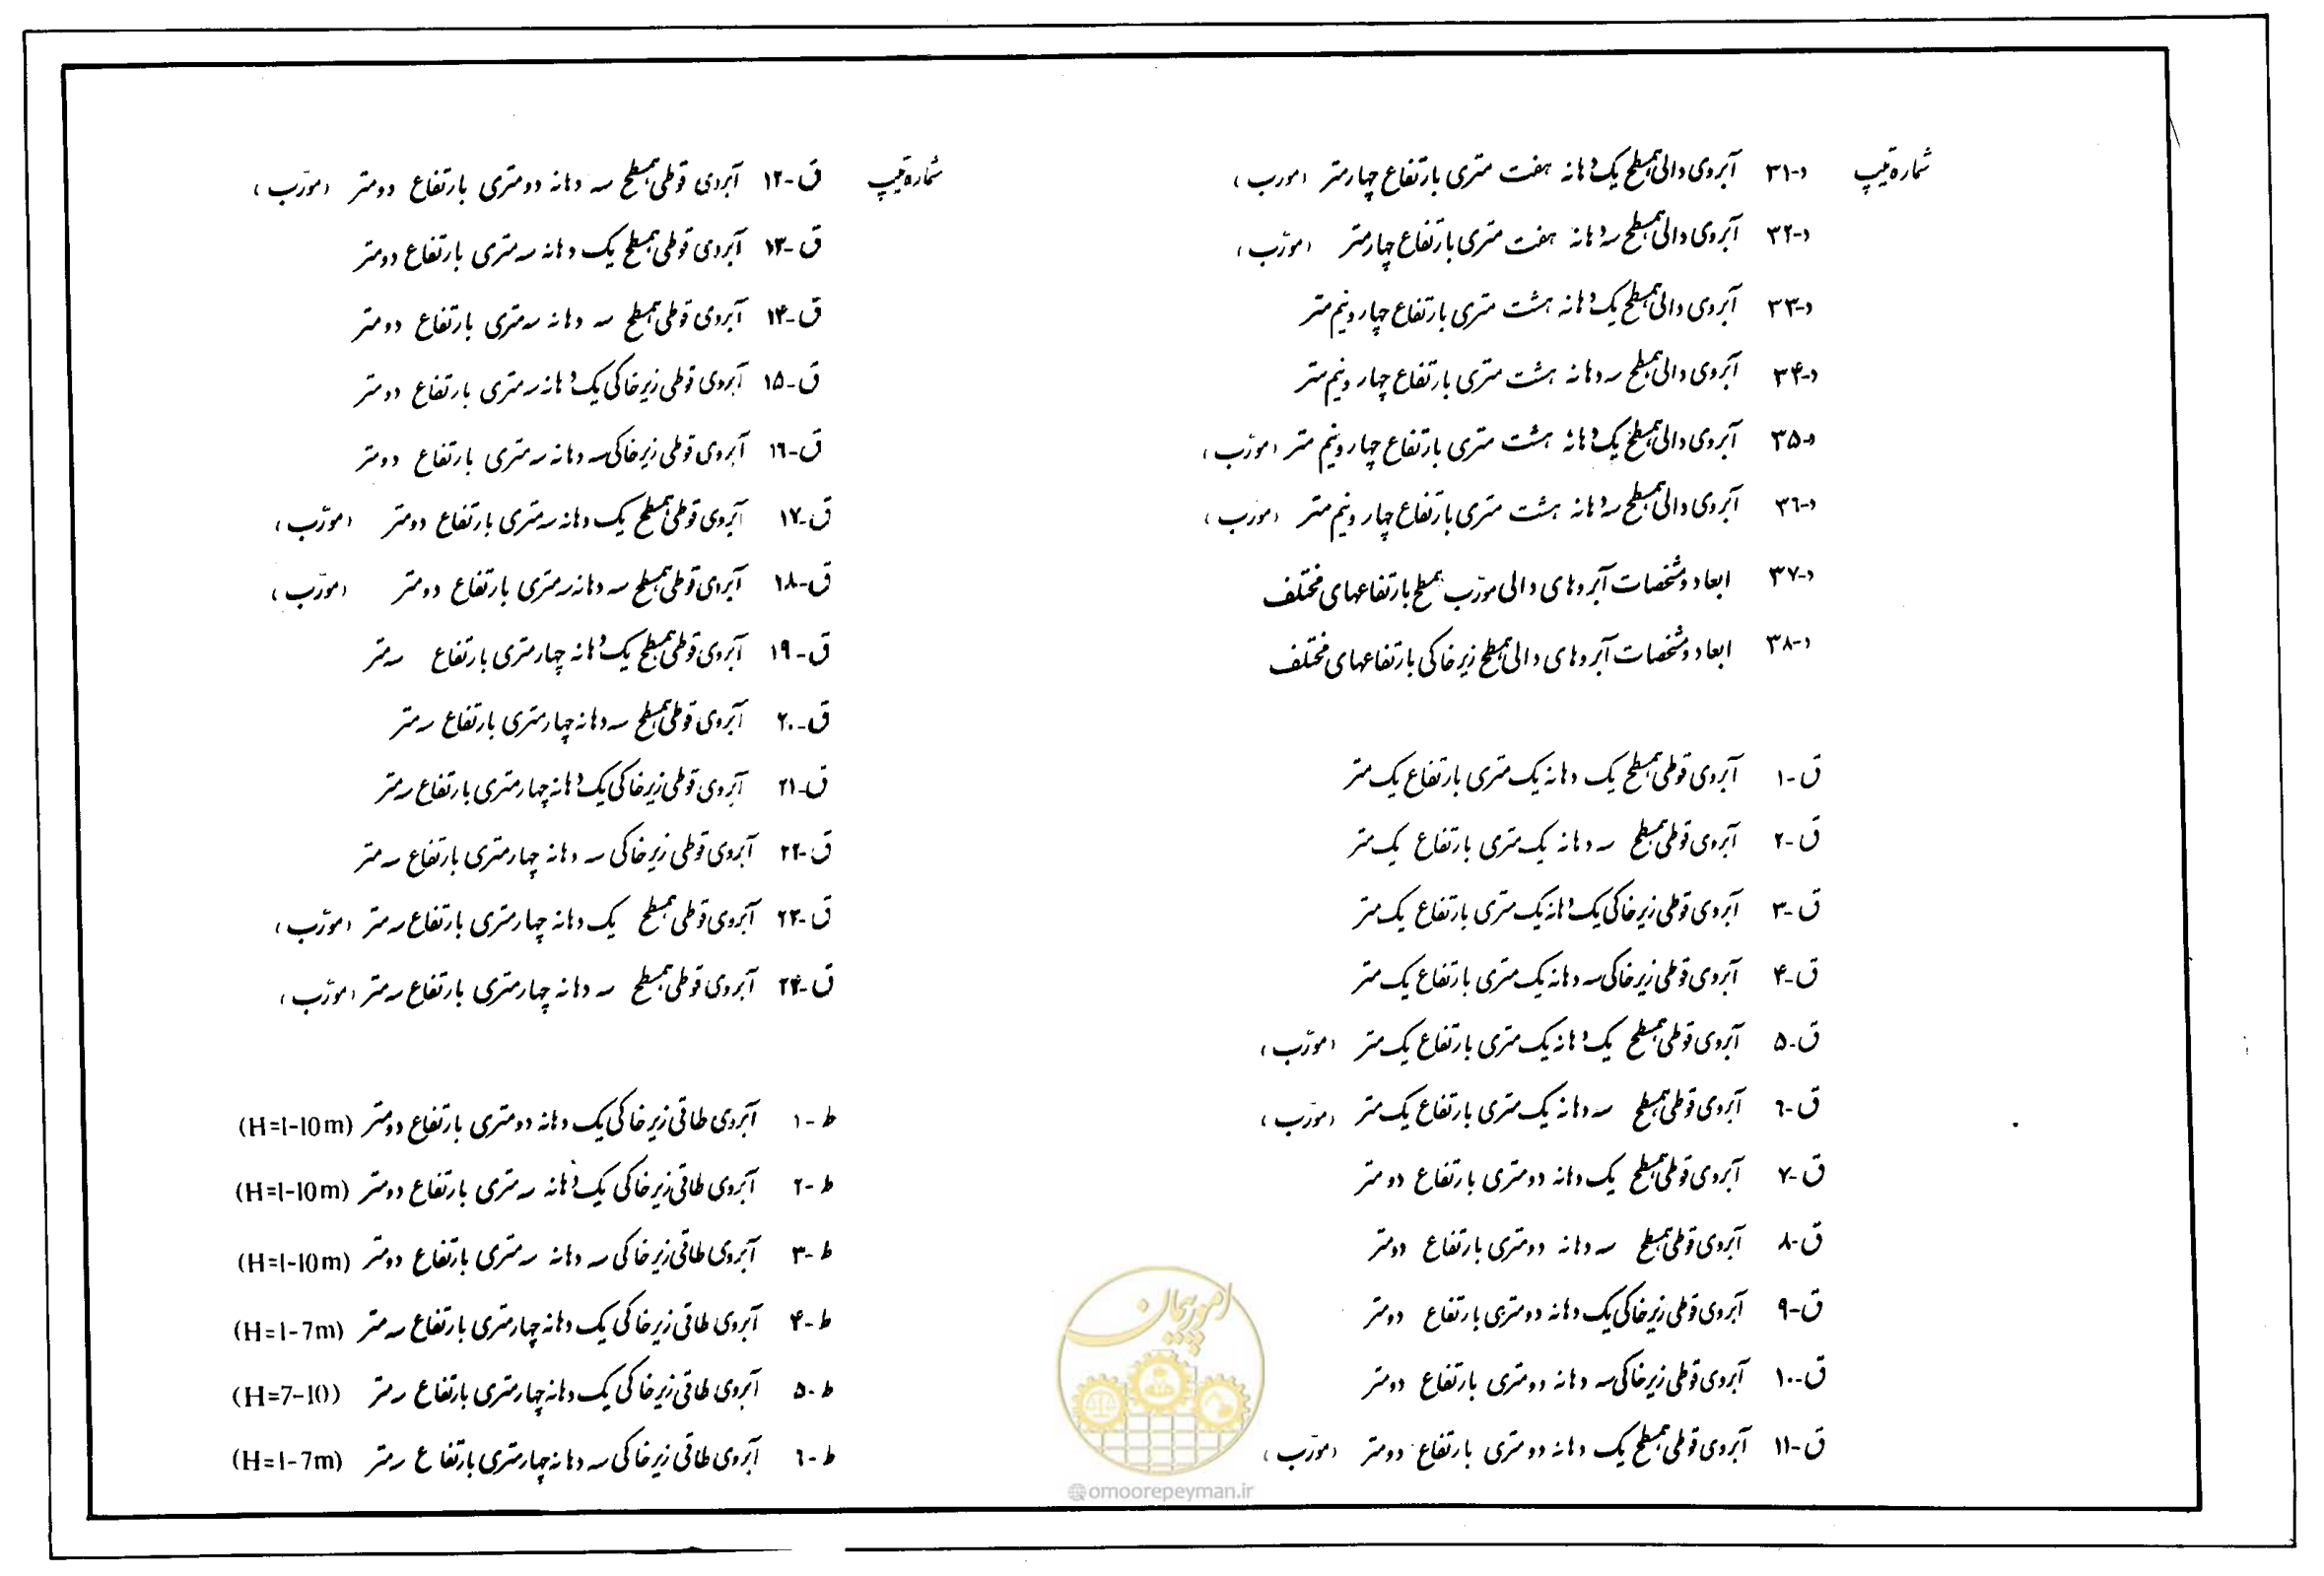 شماره تیپ
د-۳۱ آبروی دالی همسطح یک دهانه هفت متری بارتفاع چهارمتر (مورب)
د-۳۲ آبروی دالی همسطح سه دهانه هفت متری بارتفاع چهارمتر (مورّب)
د-۳۳ آبروی دالی همسطح یک دهانه هشت متری بارتفاع چهار و نیم متر
د-۳۴ آبروی دالی همسطح سه دهانه هشت متری بارتفاع چهار و نیم متر
د-۳۵ آبروی دالی همسطح یک دهانه هشت متری بارتفاع چهار و نیم متر (مورّب)
د-۳۶ آبروی دالی همسطح سه دهانه هشت متری بارتفاع چهار و نیم متر (مورب)
د-۳۷ ابعاد و مشخصات آبروهای دالی مورّب همسطح بارتفاعهای مختلف
د-۳۸ ابعاد و مشخصات آبروهای دالی همسطح زیرخاکی بارتفاعهای مختلف
ق-۱ آبروی قوطی همسطح یک دهانه یک متری بارتفاع یک متر
ق-۲ آبروی قوطی همسطح سه دهانه یک متری بارتفاع یک متر
ق-۳ آبروی قوطی زیرخاکی یک دهانه یک متری بارتفاع یک متر
ق-۴ آبروی قوطی زیرخاکی سه دهانه یک متری بارتفاع یک متر
ق-۵ آبروی قوطی همسطح یک دهانه یک متری بارتفاع یک متر (مورّب)
ق-۶ آبروی قوطی همسطح سه دهانه یک متری بارتفاع یک متر (مورّب)
ق-۷ آبروی قوطی همسطح یک دهانه دومتری بارتفاع دو متر
ق-۸ آبروی قوطی همسطح سه دهانه دومتری بارتفاع دومتر
ق-۹ آبروی قوطی زیرخاکی یک دهانه دومتری بارتفاع دومتر
ق-۱۰ آبروی قوطی زیرخاکی سه دهانه دومتری بارتفاع دومتر
ق-۱۱ آبروی قوطی همسطح یک دهانه دومتری بارتفاع دومتر (مورّب)
شماره تیپ
ق-۱۲ آبروی قوطی همسطح سه دهانه دومتری بارتفاع دومتر (مورّب)
ق-۱۳ آبروی قوطی همسطح یک دهانه سه متری بارتفاع دومتر
ق-۱۴ آبروی قوطی همسطح سه دهانه سه متری بارتفاع دومتر
ق-۱۵ آبروی قوطی زیرخاکی یک دهانه سه متری بارتفاع دومتر
ق-۱۶ آبروی قوطی زیرخاکی سه دهانه سه متری بارتفاع دومتر
ق-۱۷ آبروی قوطی همسطح یک دهانه سه متری بارتفاع دومتر (مورّب)
ق-۱۸ آبروی قوطی همسطح سه دهانه سه متری بارتفاع دومتر (مورّب)
ق-۱۹ آبروی قوطی همسطح یک دهانه چهارمتری بارتفاع سه متر
ق-۲۰ آبروی قوطی همسطح سه دهانه چهارمتری بارتفاع سه متر
ق-۲۱ آبروی قوطی زیرخاکی یک دهانه چهارمتری بارتفاع سه متر
ق-۲۲ آبروی قوطی زیرخاکی سه دهانه چهارمتری بارتفاع سه متر
ق-۲۳ آبروی قوطی همسطح یک دهانه چهارمتری بارتفاع سه متر (مورّب)
ق-۲۴ آبروی قوطی همسطح سه دهانه چهارمتری بارتفاع سه متر (مورّب)
ط-۱ آبروی طاقی زیرخاکی یک دهانه دومتری بارتفاع دومتر (H=1-10m)
ط-۲ آبروی طاقی زیرخاکی یک دهانه سه متری بارتفاع دومتر (H=1-10m)
ط-۳ آبروی طاقی زیرخاکی سه دهانه سه متری بارتفاع دومتر (H=1-10m)
ط-۴ آبروی طاقی زیرخاکی یک دهانه چهارمتری بارتفاع سه متر (H=1-7m)
ط-۵ آبروی طاقی زیرخاکی یک دهانه چهارمتری بارتفاع سه متر (H=7-10)
ط-۶ آبروی طاقی زیرخاکی سه دهانه چهارمتری بارتفاع سه متر (H=1-7m)
امور پیمان
@omoorepeyman.ir